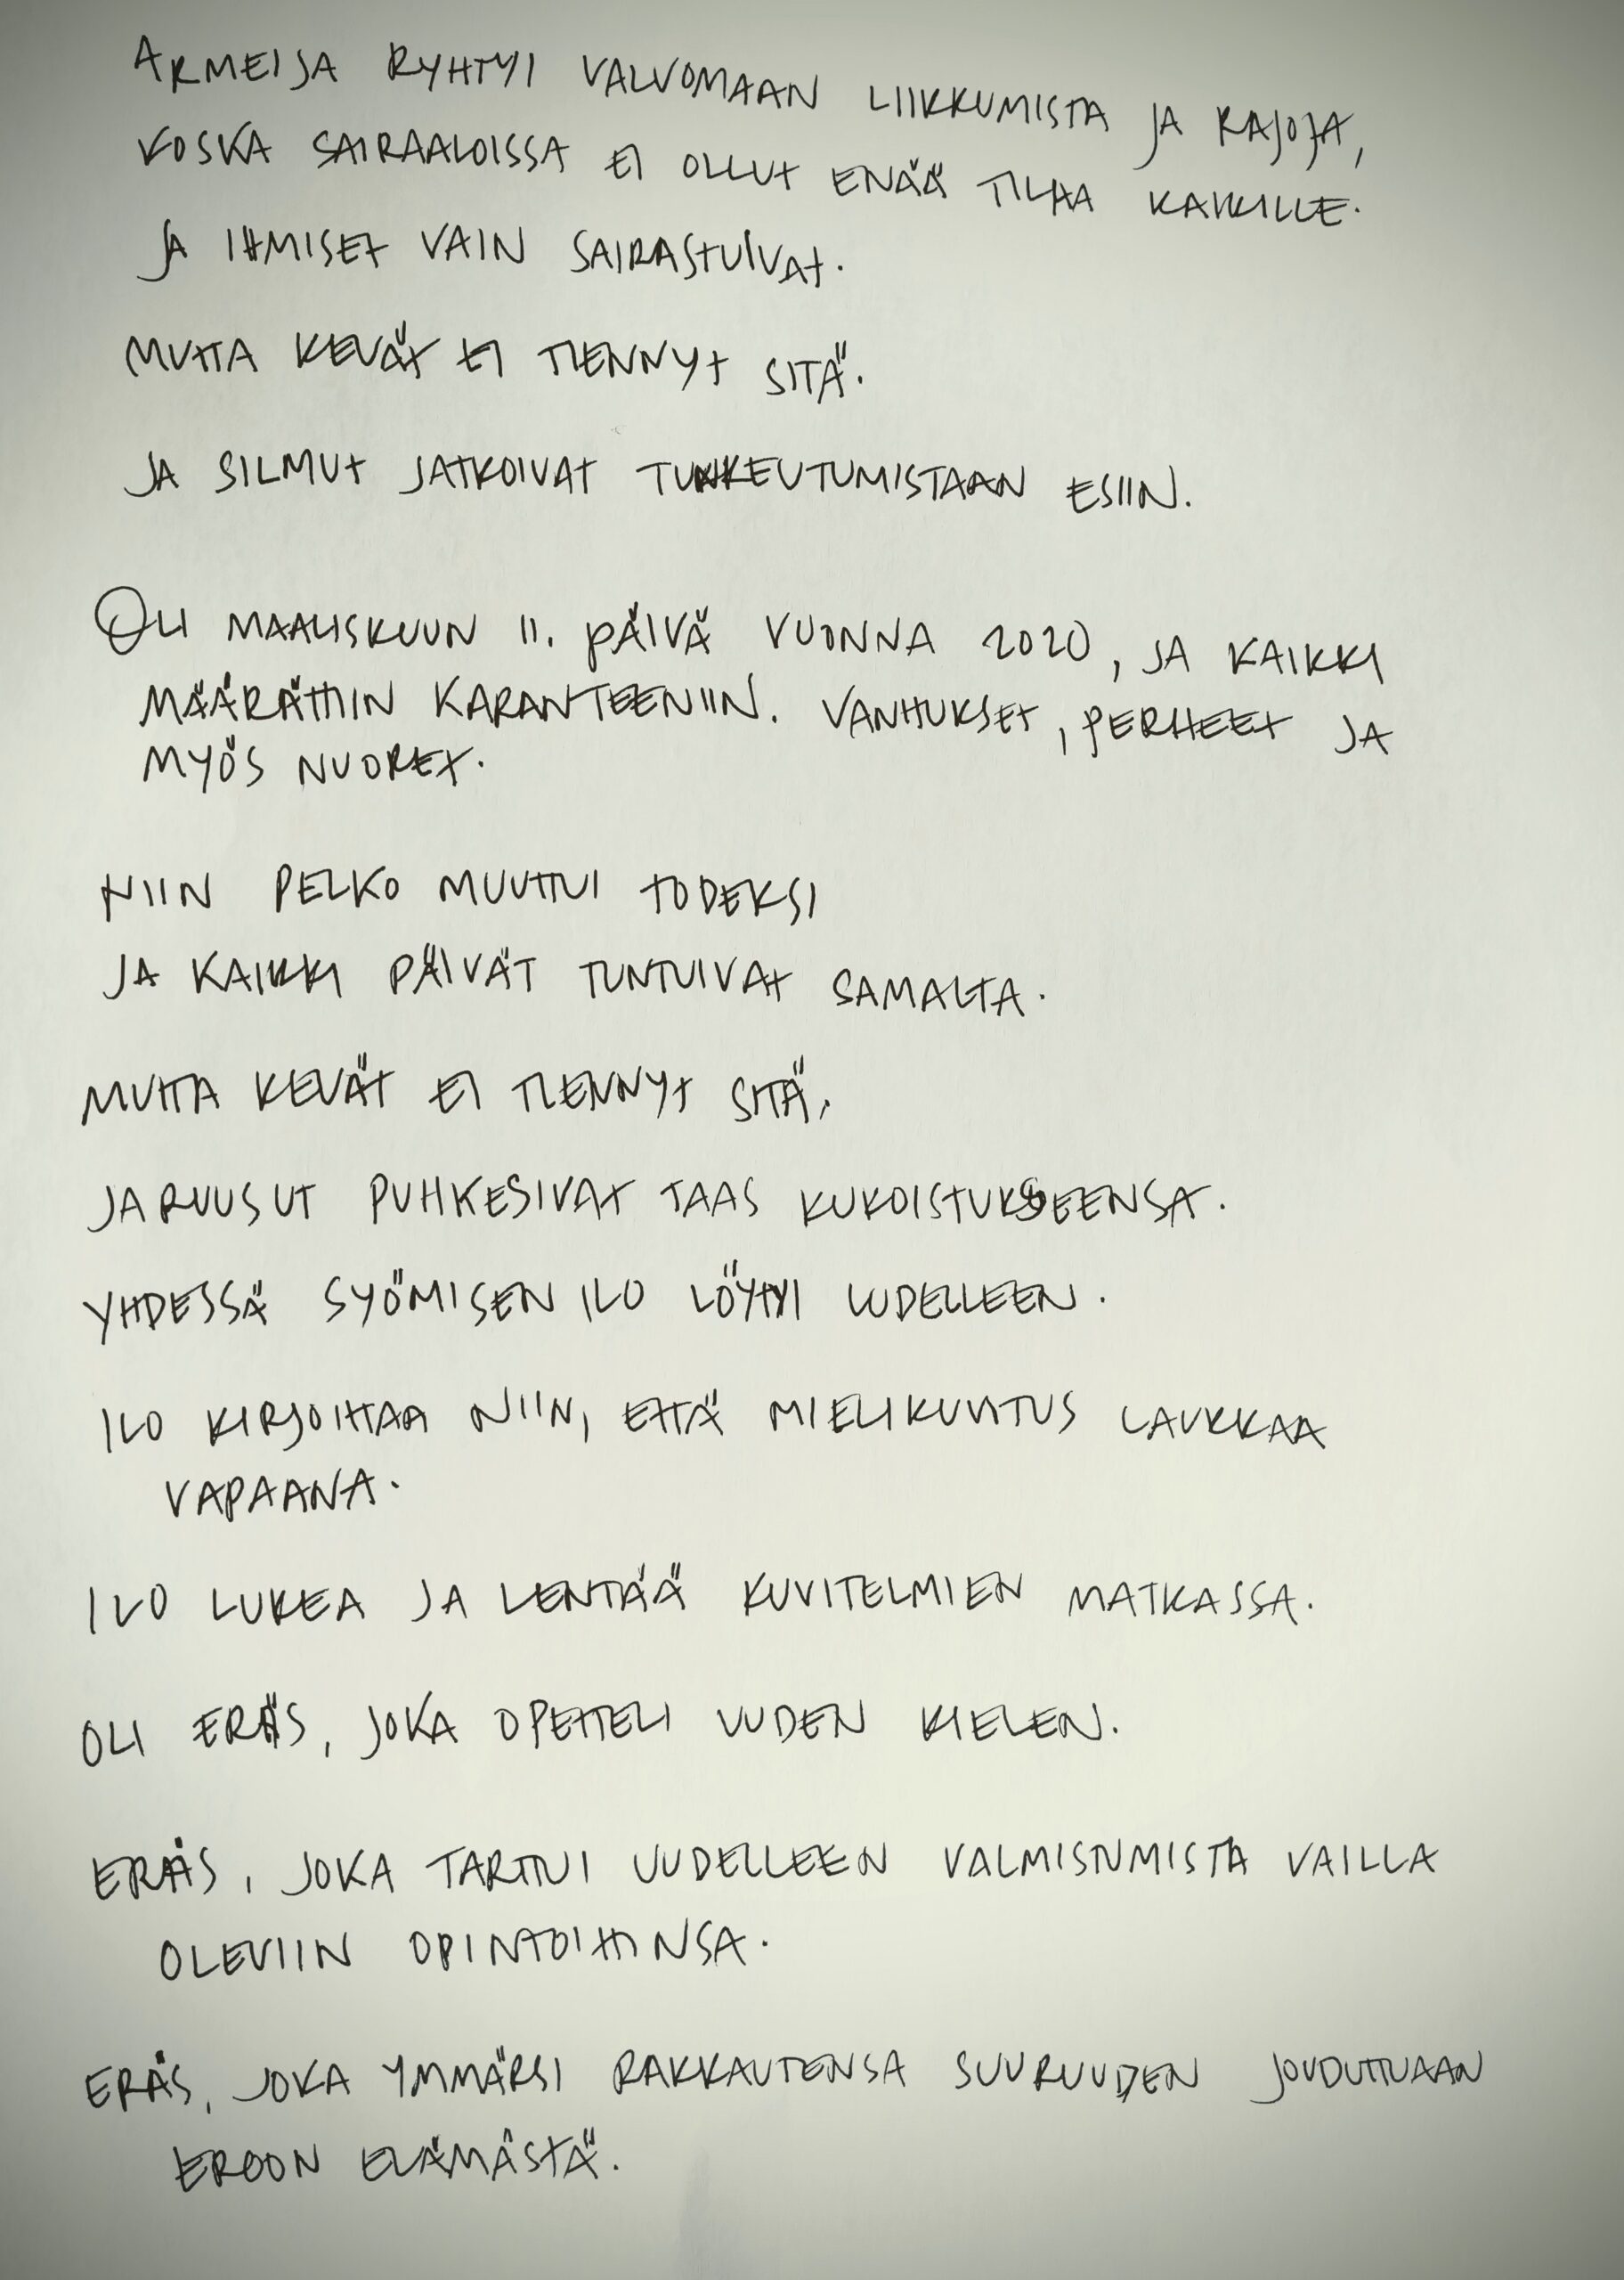 ARMEIJA RYHTYI VALVOMAAN LIIKKUMISTA JA RAJOJA,
KOSKA SAIRAALOISSA EI OLLUT ENÄÄ TILAA KAIKILLE.
JA IHMISET VAIN SAIRASTUIVAT.
MUTTA KEVÄT EI TIENNYT SITÄ.
JA SILMUT JATKOIVAT TUNKEUTUMISTAAN ESIIN.
OLI MAALISKUUN 11. PÄIVÄ VUONNA 2020, JA KAIKKI
MÄÄRÄTTIIN KARANTEENIIN. VANHUKSET, PERHEET JA
MYÖS NUORET.
NIIN PELKO MUUTTUI TODEKSI
JA KAIKKI PÄIVÄT TUNTUIVAT SAMALTA.
MUTTA KEVÄT EI TIENNYT SITÄ,
JA RUUSUT PUHKESIVAT TAAS KUKOISTUKSEENSA.
YHDESSÄ SYÖMISEN ILO LÖYTYI UUDELLEEN.
ILO KIRJOITTAA NIIN, ETTÄ MIELIKUVITUS LAUKKAA
VAPAANA.
ILO LUKEA JA LENTÄÄ KUVITELMIEN MATKASSA.
OLI ERÄS, JOKA OPETTELI UUDEN KIELEN.
ERÄS, JOKA TARTTUI UUDELLEEN VALMISTUMISTA VAILLA
OLEVIIN OPINTOIHINSA.
ERÄS, JOKA YMMÄRSI RAKKAUTENSA SUURUUDEN JOUDUTTUAAN
EROON ELÄMÄSTÄ.